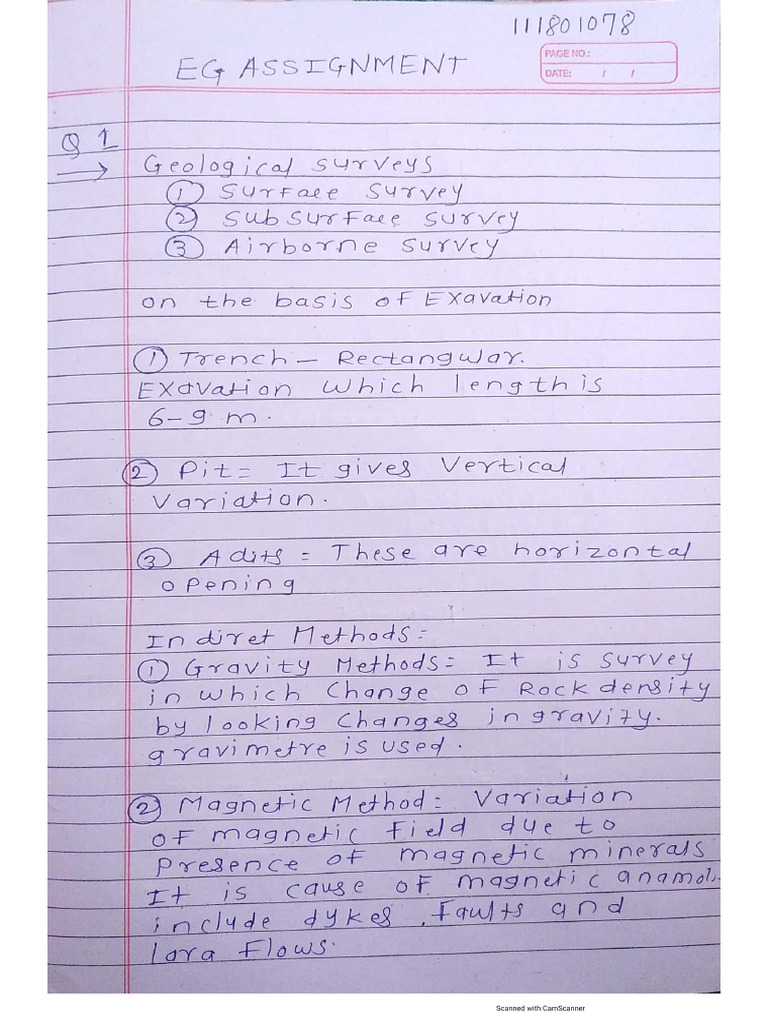 111801078
EG ASSIGNMENT
PAGE NO.:
DATE: / /
Q 1
→ Geological surveys
① Surface survey
② Subsurface survey
③ Airborne survey
on the basis of Exavation
① Trench – Rectangular.
Exavation which length is
6–9 m.
② Pit = It gives vertical
Variation.
③ Adits = These are horizontal
opening
Indiret Methods =
① Gravity Methods = It is survey
in which change of Rock density
by looking changes in gravity.
gravimetre is used.
② Magnetic Method = Variation
of magnetic field due to
Presence of magnetic minerals
It is cause of magnetic anamoly.
include dykes, faults and
lava flows.
Scanned with CamScanner